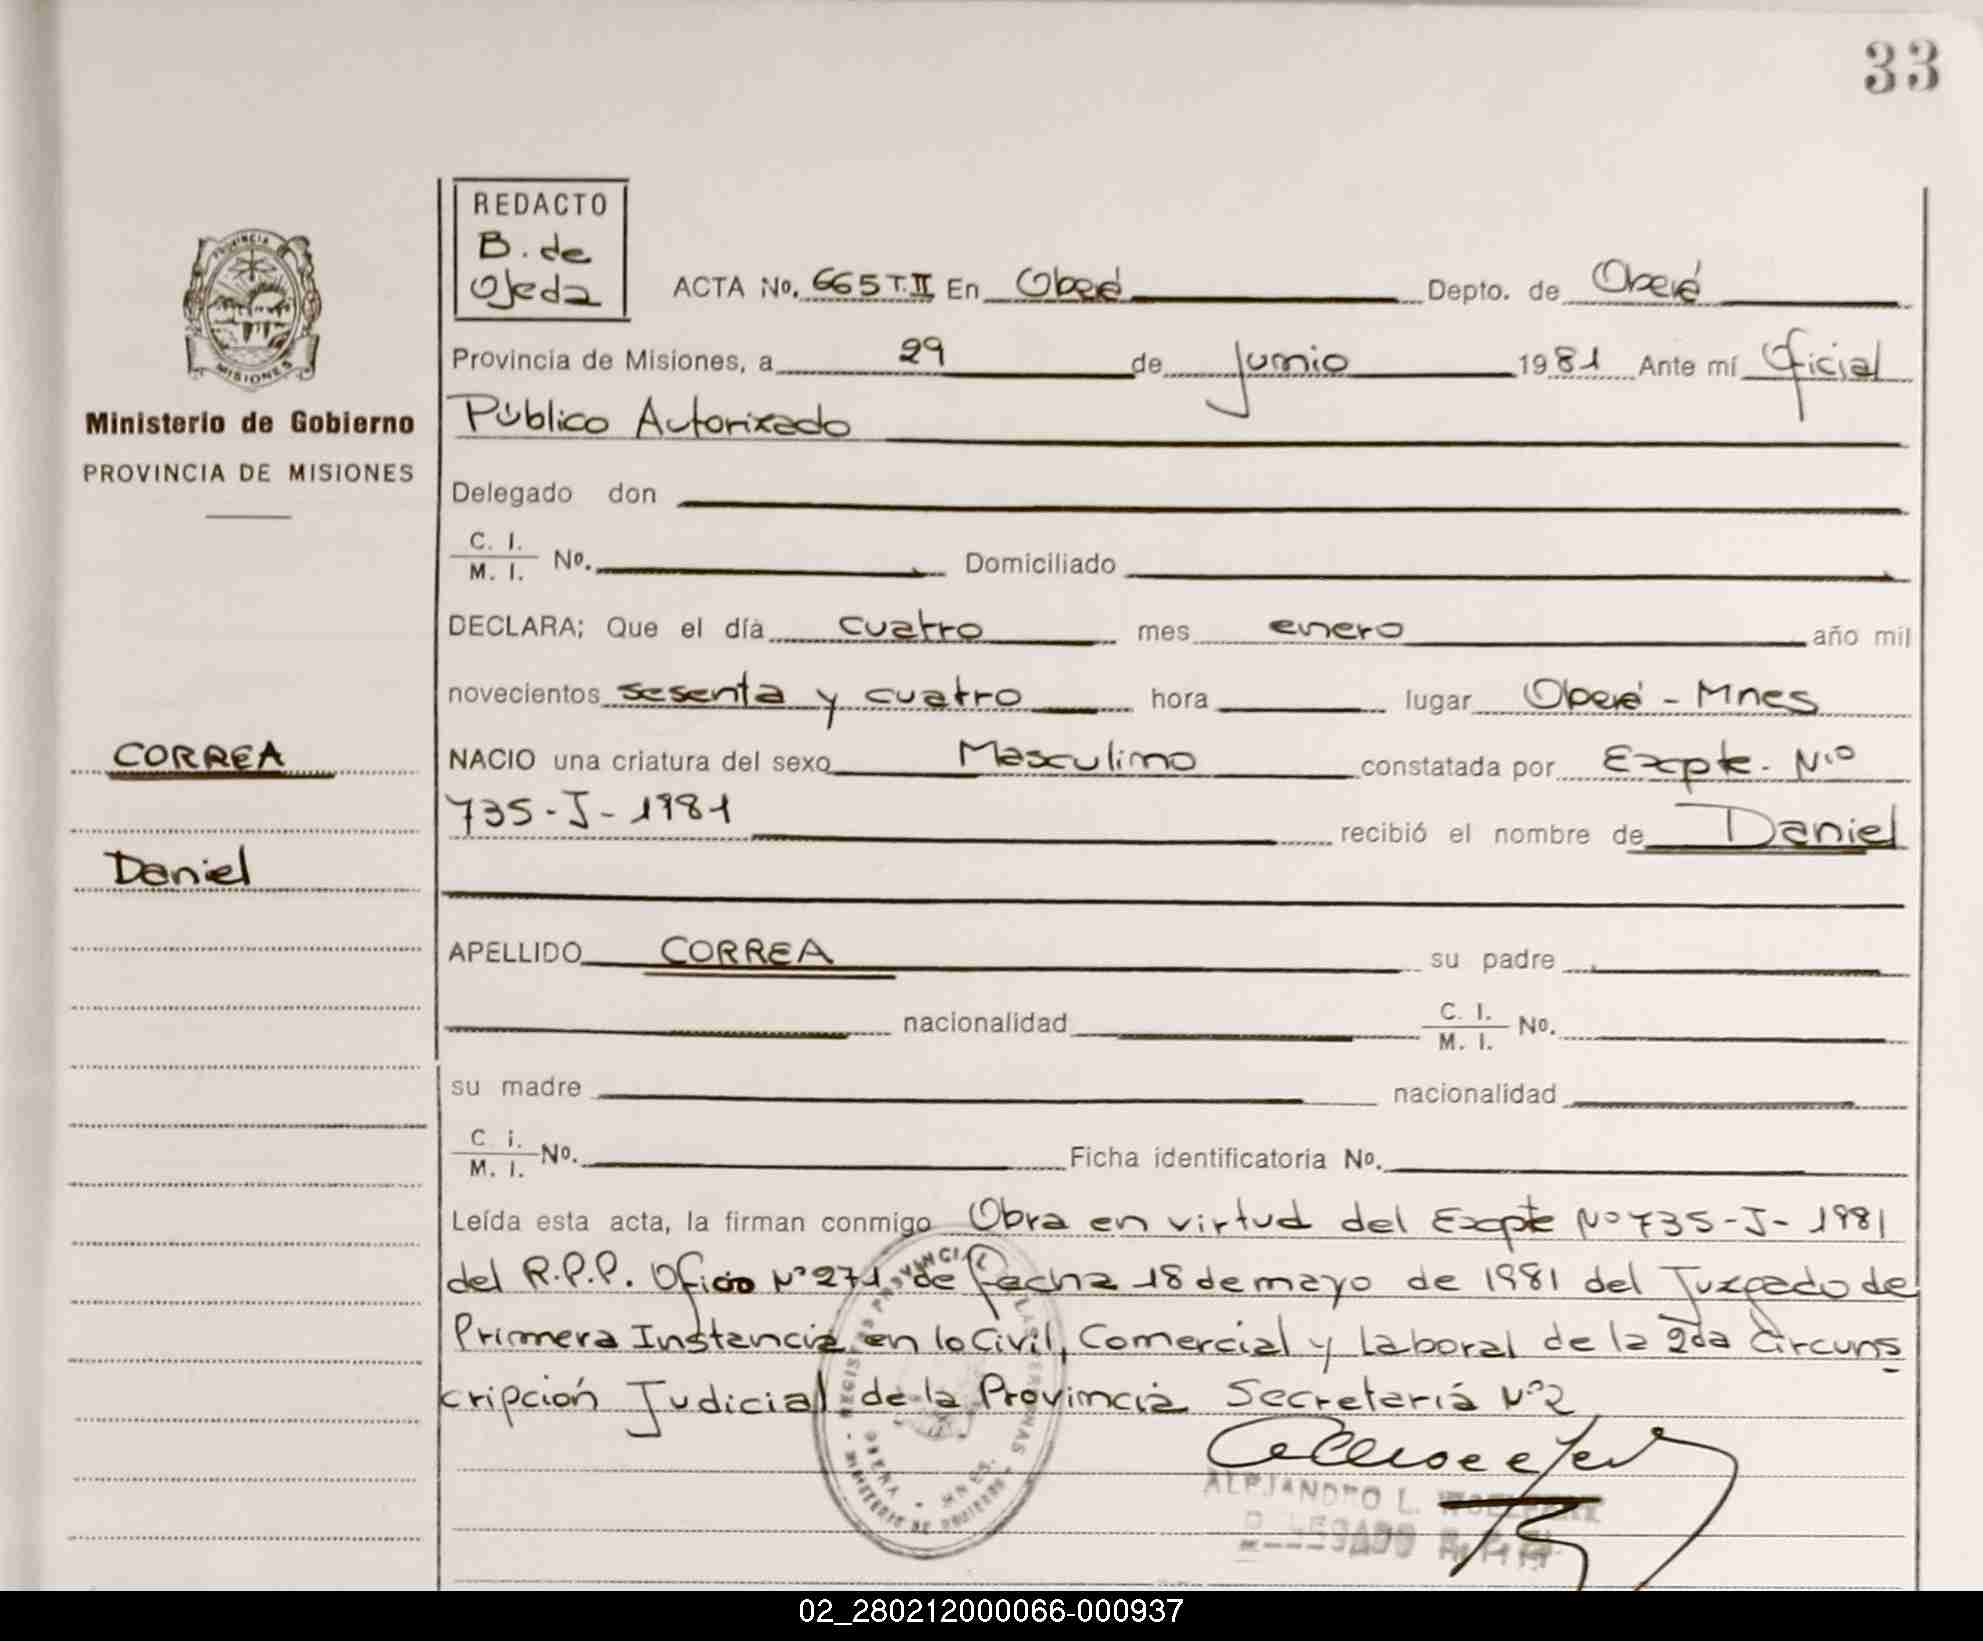 33
REDACTO
B. de
Ojeda
ACTA No. 665 T. II En Oberá Depto. de Oberá
PROVINCIA
MISIONES
Provincia de Misiones, a 29 de Junio 1981 Ante mí Oficial
Público Autorizado
Ministerio de Gobierno
PROVINCIA DE MISIONES
Delegado don
C. I.
M. I. No. Domiciliado
DECLARA; Que el día cuatro mes enero año mil
novecientos sesenta y cuatro hora lugar Oberá - Mnes
CORREA
NACIO una criatura del sexo Masculino constatada por Expte. N.º
735-J-1981 recibió el nombre de Daniel
Daniel
APELLIDO CORREA su padre
nacionalidad C. I.
M. I. No.
su madre nacionalidad
C i.
M. I. No. Ficha identificatoria No.
Leída esta acta, la firman conmigo Obra en virtud del Expte Nº 735-J-1981
del R.P.P. Oficio Nº 271 de fecha 18 de mayo de 1981 del Juzgado de
Primera Instancia en lo Civil, Comercial y Laboral de la 2da Circuns
cripción Judicial de la Provincia Secretaría Nº 2
ALEJANDRO L.
DELEGADO
02_280212000066-000937